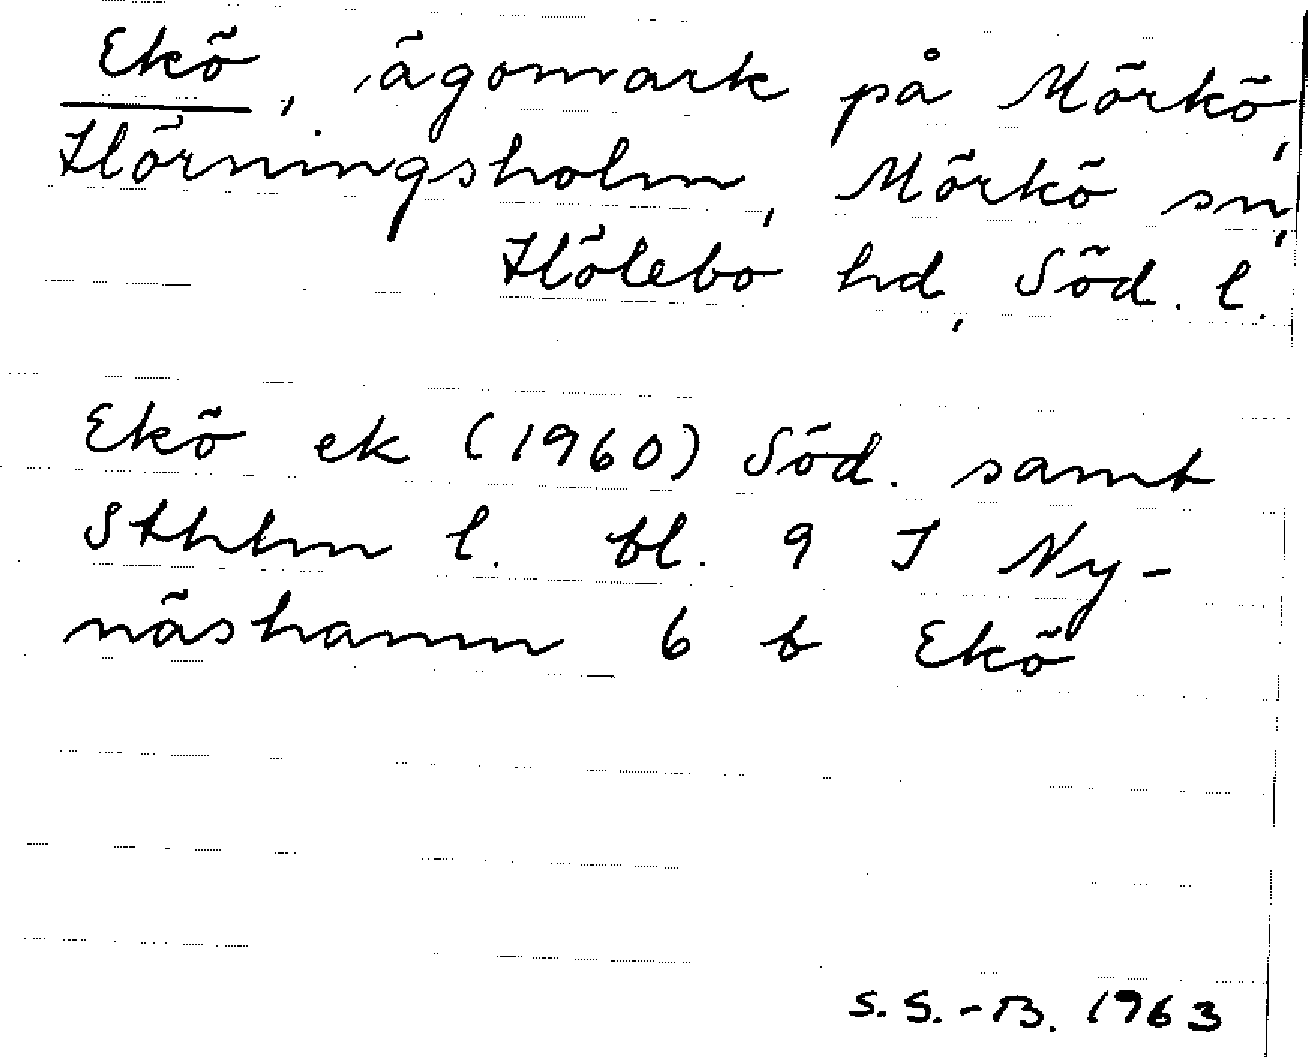 Ekö, ägomark på Mörkö,
Hörningsholm, Mörkö sn,
Hölebo hd, Söd. l.
Ekö ek (1960) Söd. samt
Sthlm l. bl. 9 I Ny-
näshamn 6 b Ekö
S.S.-B. 1963